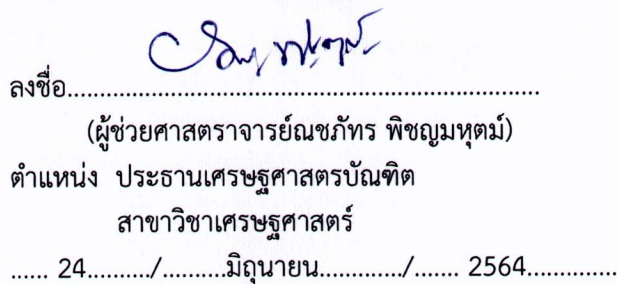 ลงชื่อ......................................................................
(ผู้ช่วยศาสตราจารย์ณชภัทร พิชญมหุตม์)
ตำแหน่ง ประธานเศรษฐศาสตรบัณฑิต
สาขาวิชาเศรษฐศาสตร์
...... 24........../..........มิถุนายน............./....... 2564..............